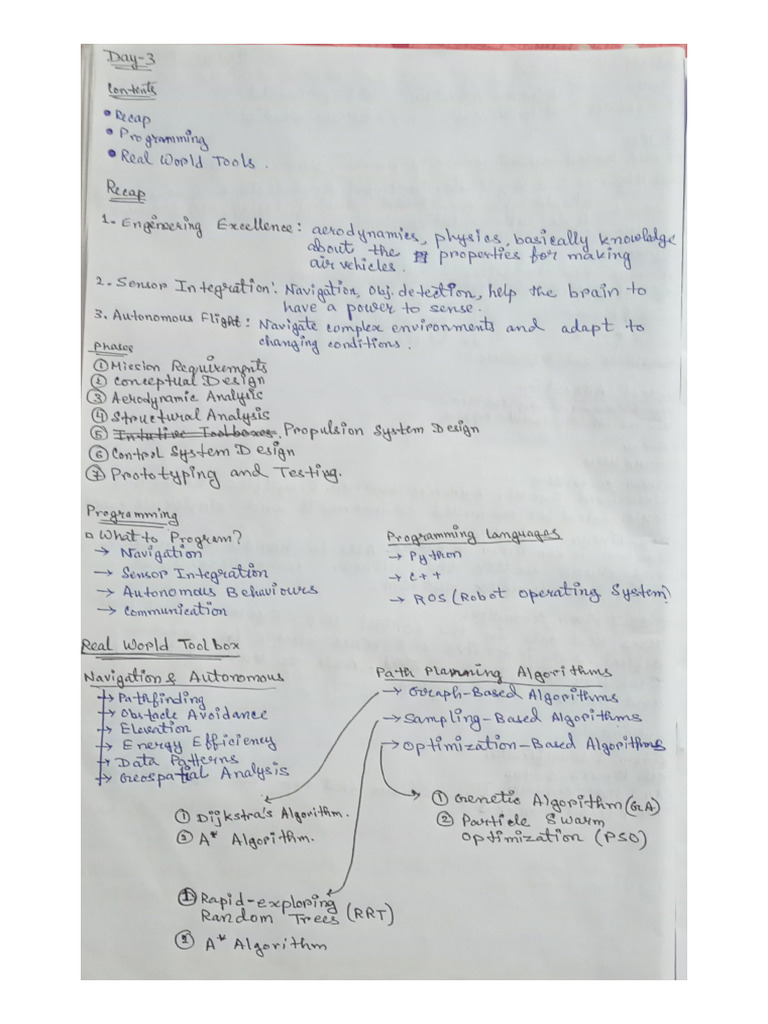 Day-3
Contents
• Recap
• Programming
• Real World Tools.
Recap
1. Engineering Excellence: aerodynamics, physics, basically knowledge
about the properties for making
air vehicles.
2. Sensor Integration: Navigation, Obj. detection, help the brain to
have a power to sense.
3. Autonomous Flight: Navigate complex environments and adapt to
changing conditions.
Phases
① Mission Requirements
② Conceptual Design
③ Aerodynamic Analysis
④ Structural Analysis
⑤ Intutive Toolboxes. Propulsion System Design
⑥ Control System Design
⑦ Prototyping and Testing.
Programming
□ What to Program?
→ Navigation
→ Sensor Integration
→ Autonomous Behaviours
→ Communication
Programming Languages
→ Python
→ C++
→ ROS (Robot Operating System)
Real World Toolbox
Navigation & Autonomous
→ Pathfinding
→ Obstacle Avoidance
→ Elevation
→ Energy Efficiency
→ Data Patterns
→ Geospatial Analysis
Path Planning Algorithms
→ Graph-Based Algorithms
→ Sampling-Based Algorithms
→ Optimization-Based Algorithms
① Dijkstra's Algorithm.
② A* Algorithm.
① Genetic Algorithm (GA)
② Particle Swarm
Optimization (PSO)
① Rapid-exploring
Random Trees (RRT)
② A* Algorithm